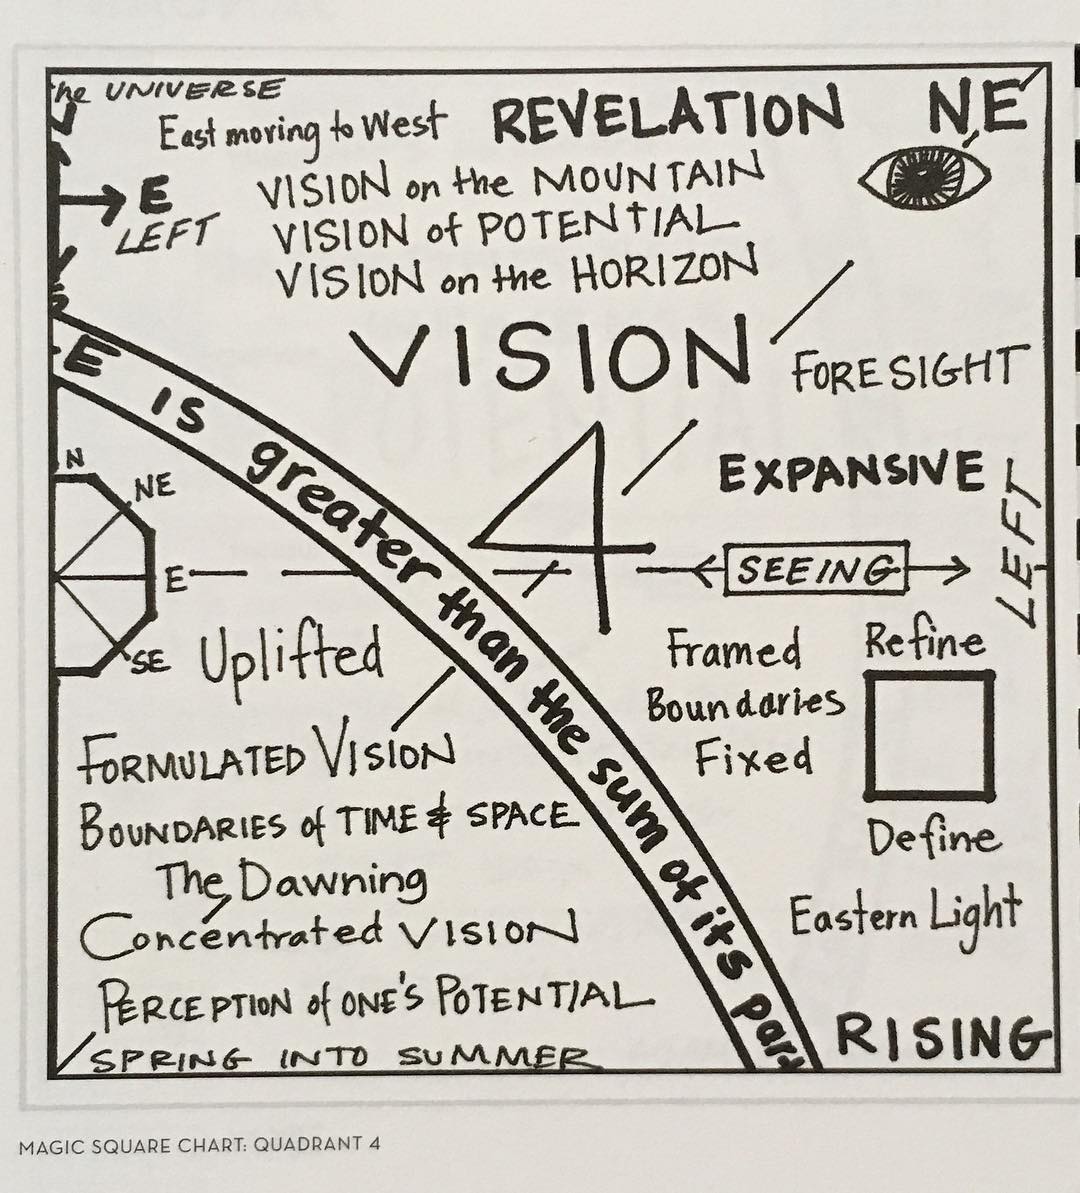 the UNIVERSE
East moving to West
REVELATION
NE
E
LEFT
VISION on the MOUNTAIN
VISION of POTENTIAL
VISION on the HORIZON
VISION
FORESIGHT
E IS greater than the sum of its part
4
EXPANSIVE
LEFT
N
NE
E
SE
SEEING
Uplifted
Framed
Boundaries
Fixed
Refine
Define
FORMULATED VISION
BOUNDARIES of TIME & SPACE
The Dawning
Concentrated VISION
PERCEPTION of ONE'S POTENTIAL
SPRING INTO SUMMER
Eastern Light
RISING
MAGIC SQUARE CHART: QUADRANT 4